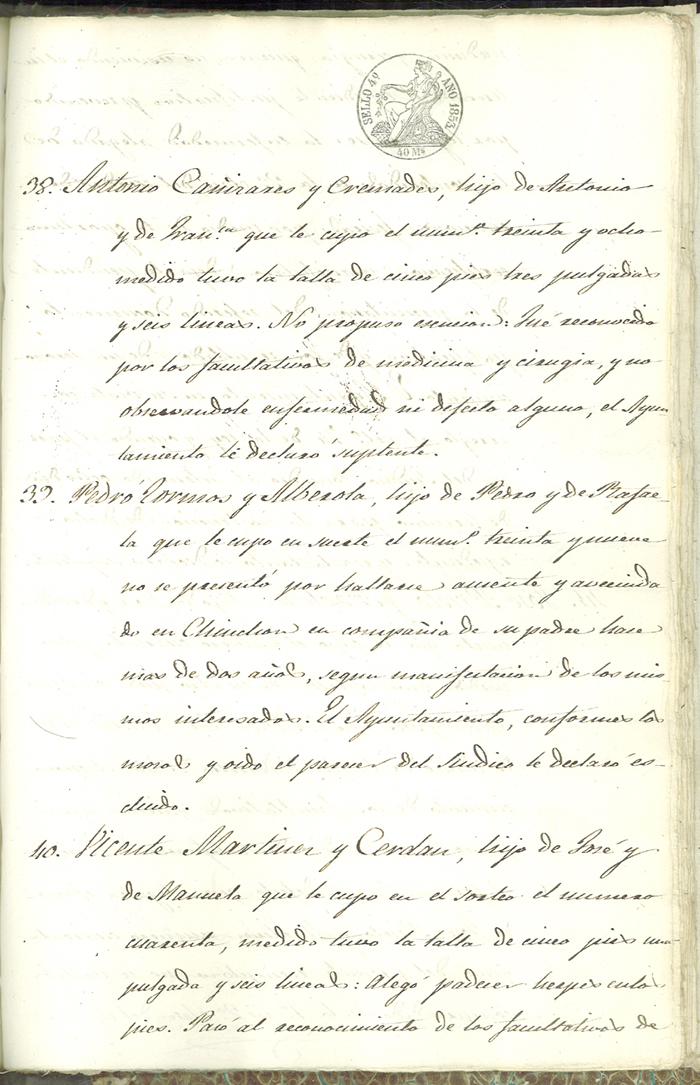 SELLO 4º AÑO 1853.
40 Ms
38. Antonio Cañizares y Cremades, hijo de Antonio
y de Fran.ca que le cupo el num.º treinta y ocho
medido tuvo la talla de cinco pies tres pulgadas
y seis lineas. No propuso escucion: Fué reconocido
por los facultativos de medicina y cirugia, y no
observandole enfermedad ni defecto alguno, el Ayun
tamiento lé declaró suplente.
39. Pedro Tormos y Alberola, hijo de Pedro y de Rafae-
la que le cupo en suerte el num.º treinta y nueve
no se presentó por hallarse ausente y avecinda
do en Chinchon en compañia de su padre hace
mas de dos años, segun manifestacion de los mis
mos interesados. El Ayuntamiento, conformes los
mozos y oido el parecer del Sindico le declaró es-
cluido.
40. Vicente Martinez y Cerdan, hijo de José y
de Manuela que le cupo en el sorteo el numero
cuarenta, medido tuvo la talla de cinco pies una
pulgada y seis lineas: Alegó padecer herpes en los
pies. Pasó al reconocimiento de los facultativos de